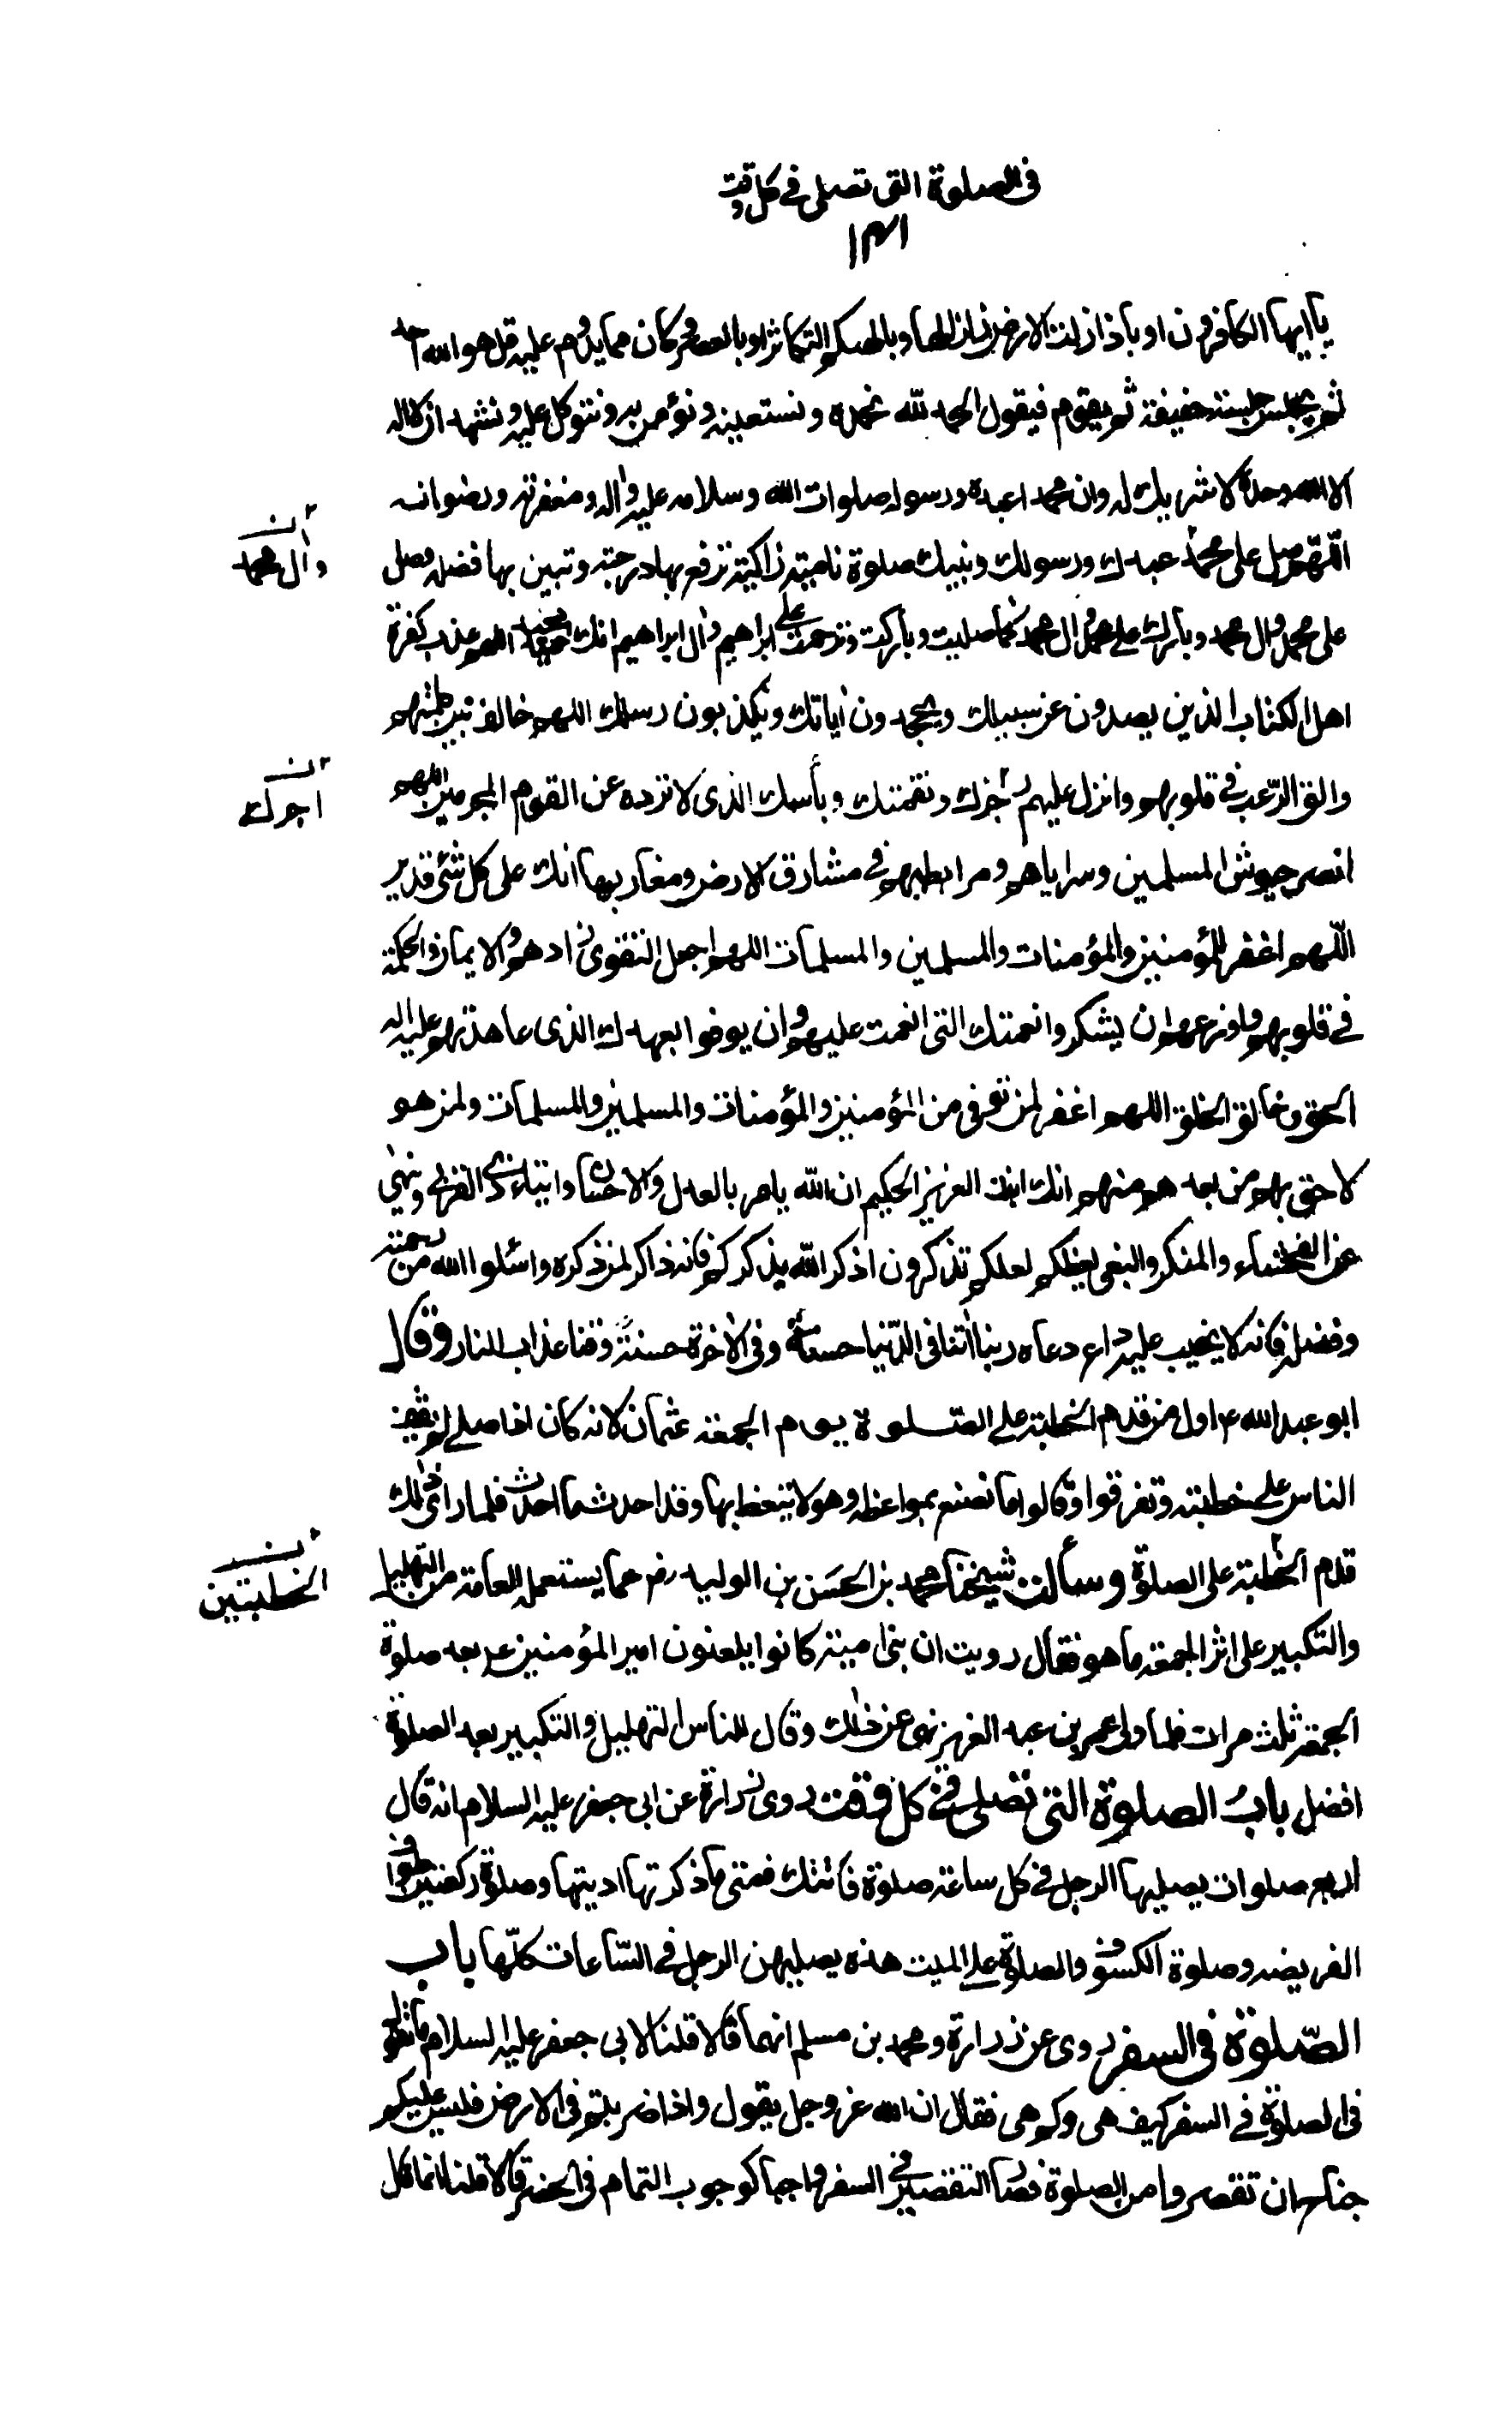 في الصلوة التي تصلى في كل وقت
١٣١
يا ايها الكافرون او باذا زلزلت الارض زلزالها او بالهيكم التكاثر او بالعصر وكان مما يدوم عليه قل هو الله احد
ثم يجلس جلسة خفيفة ثم يقوم فيقول الحمد لله نحمده ونستعينه ونؤمن به ونتوكل عليه ونشهد ان لا اله
الا الله وحده لا شريك له وان محمدا عبده ورسوله صلوات الله وسلامه عليه واله ومغفرته ورضوانه
اللهم صل على محمد عبدك ورسولك ونبيك صلوة نامية زاكية ترفع بها درجته وتبين بها فضله وصل
وآل محمد
على محمد وال محمد وبارك على محمد وال محمد كما صليت وباركت وترحمت على ابراهيم وال ابراهيم انك حميد مجيد اللهم عذب كفرة
اهل الكتاب الذين يصدون عن سبيلك ويجحدون اياتك ويكذبون رسلك اللهم خالف بين كلمتهم
والق الرعب في قلوبهم وانزل عليهم رجزك ونقمتك وبأسك الذى لا ترده عن القوم المجرمين اللهم
انصر جيوش المسلمين وسراياهم ومرابطيهم في مشارق الارض ومغاربها انك على كل شئ قدير
اللهم اغفر للمؤمنين والمؤمنات والمسلمين والمسلمات اللهم اجعل التقوى زادهم والايمان والحكمة
في قلوبهم واوزعهم ان يشكروا نعمتك التي انعمت عليهم وان يوفوا بعهدك الذى عاهدتهم عليه اله
الحق وخالق الخلق اللهم اغفر لمن توفى من المؤمنين والمؤمنات والمسلمين والمسلمات ولمن هو
لاحق بهم من بعدهم منهم انك انت العزيز الحكيم ان الله يامر بالعدل والاحسان وايتاء ذي القربى وينهى
عن الفحشاء والمنكر والبغى يعظكم لعلكم تذكرون اذكر الله يذكركم فانه ذاكر لمن ذكره واسئلوا الله من رحمته
وفضله فانه لا يخيب عليه داع دعاه ربنا اتنا في الدنيا حسنة وفى الاخرة حسنة وقنا عذاب النار وقال
ابو عبد الله ع اول من قدم الخطبة على الصلوة يوم الجمعة عثمان لانه كان اذا صلى لم يقف
الناس على خطبته وتفرقوا وقالوا ما نصنع بمواعظه وهو لا يتعظ بها وقد احدث ما احدث فلما راى ذلك
قدم الخطبة على الصلوة وسألت شيخنا محمد بن الحسن بن الوليد رض عما يستعمله العامة من التهليل
الخطبتين
والتكبير على اثر الجمعة ما هو فقال رويت ان بنى امية كانوا يلعنون امير المؤمنين ع بعد صلوة
الجمعة ثلث مرات فلما ولى عمر بن عبد العزيز نهى عن ذلك وقال للناس التهليل والتكبير بعد الصلوة
افضل باب الصلوة التي تصلى في كل وقت روى زرارة عن ابى جعفر عليه السلام انه قال
اربع صلوات يصليها الرجل في كل ساعة صلوة فاتتك فمتى ما ذكرتها اديتها وصلوة ركعتي طواف
الفريضه وصلوة الكسوف والصلوة على الميت هذه يصليهن الرجل في الساعات كلها باب
الصلوة في السفر روى عن زرارة ومحمد بن مسلم انهما قالا قلنا لابى جعفر عليه السلام ما تقول
في الصلوة في السفر كيف هى وكم هى فقال ان الله عز وجل يقول واذا ضربتم في الارض فليس عليكم
جناح ان تقصروا من الصلوة فصار التقصير في السفر واجبا كوجوب التمام في الحضر قالا قلنا انما قال